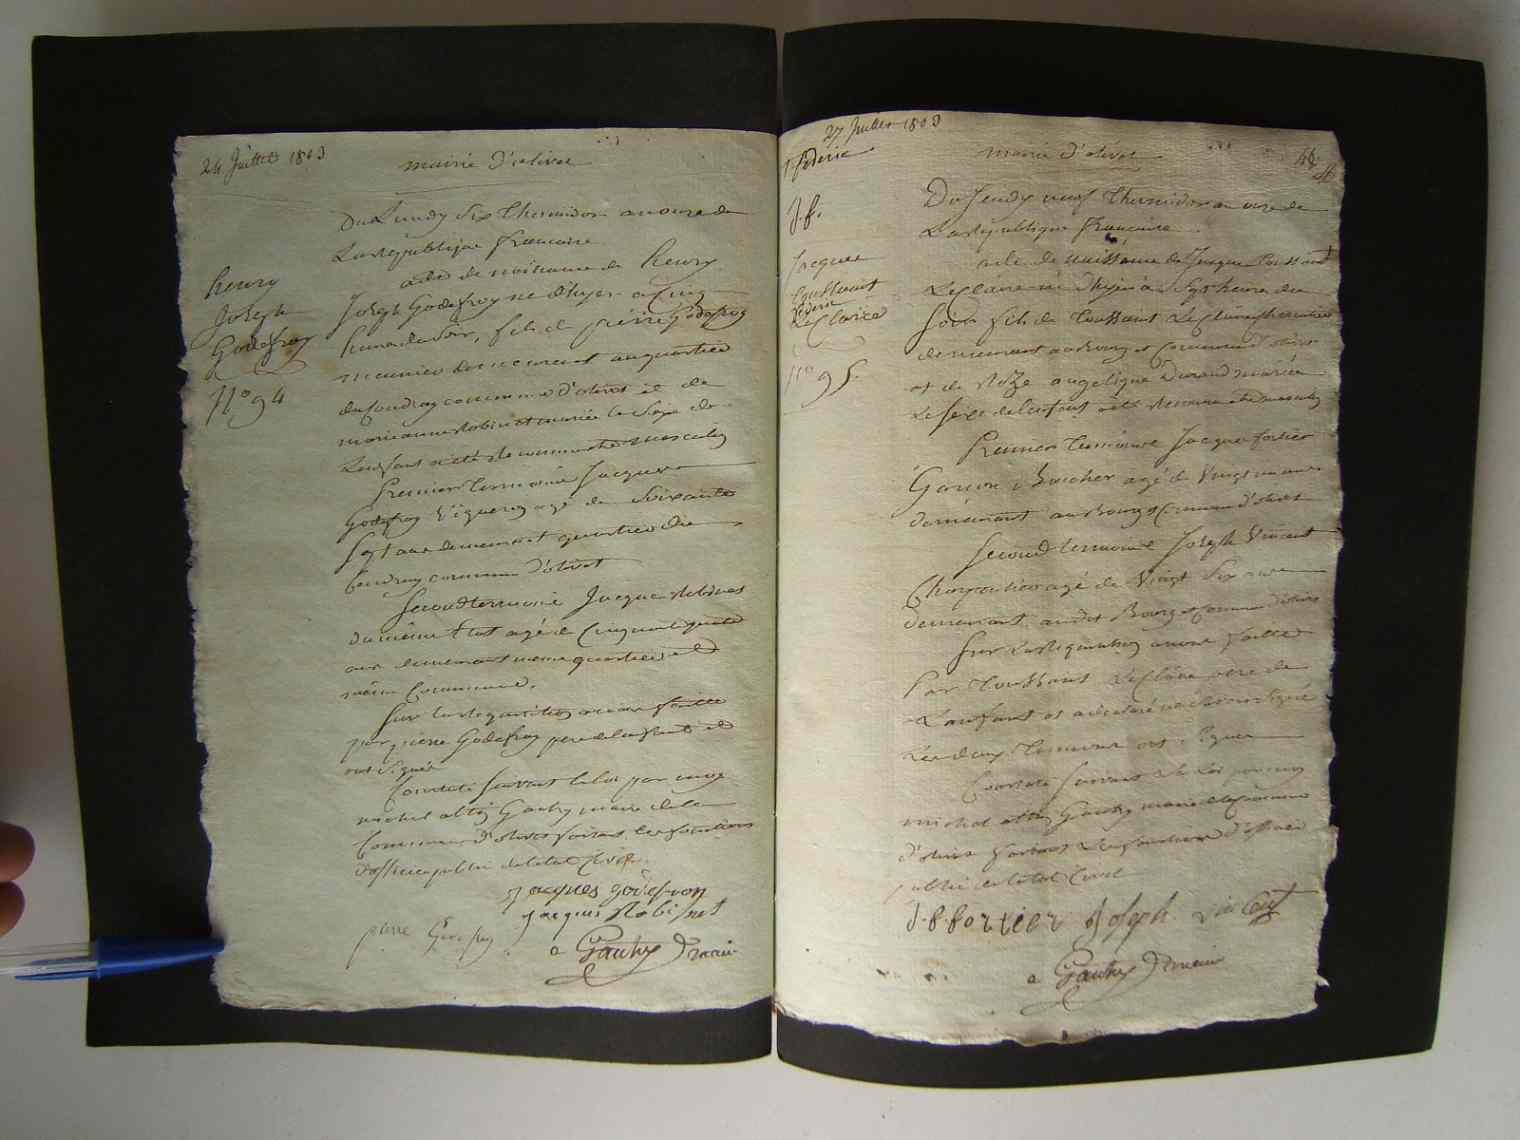 24 Juillet 1803
mairie d'olivet
Du Lundy Six Thermidor an onze de
La république francaise
acte de naissance de henry
Joseph Godefroy né d'hyer a Cinq
heure du Soir, fils de pierre Godefroy
meunier demeurant au quartier
du Coudray commune d'olivet et de
marianne Robinet mariée le Sexe de
L'enfant a été reconnu etre masculin
Premier temoins Jacques
Godefroy Vigneron agé de Soixante
Sept ans demeurant quartier du
Coudray commune d'olivet
Second temoins Jacque Robinet
du même Etat agé de Cinquante quatre
ans demeurant même quartier et
même Commune.
Sur la requisition a nous faitte
par pierre Godefroy pere de l'enfant et
ont Signé
Constaté Suivant la loi par moy
michel Gauthy maire de la
Commune d'olivet faisant les fonctions
d'officier public de l'etat Civil
henry
Joseph
Godefroy
N° 94
Jacques godefroy
Jacques Robinet
pierre Godefroy
Gauthy maire
27 Juillet 1803
mairie d'olivet
Du Jeudy neuf Thermidor an onze de
La république francaise
acte de naissance de Jacque Toussaint
Leclaire né d'hyer à Sept heure du
Soir fils de Toussaint Leclaire
demeurant au Bourg et Commune d'olivet
et de Roze angelique Durand mariée
Le Sexe de l'enfant a été reconnu etre masculin
Premier temoins Jacque fortier
Garcon Boucher agé de Vingt un ans
demeurant au Bourg et Commune d'olivet
Second temoins Joseph Vincent
Charpentier agé de Vingt Six ans
demeurant audit Bourg et Commune d'olivet
Sur La requisition a nous faitte
Par Toussaint Leclaire pere de
L'enfant et a déclaré ne Savoir Signé
Les deux Temoins ont Signé
Constaté Suivant La Loi par moy
michel Gauthy maire de la Commune
d'olivet faisant Les fonctions d'officier
public de l'etat Civil
J. f.
Jacques
Toussaint
Leclaire
N° 95
J. P. fortier Joseph Vincent
Gauthy maire